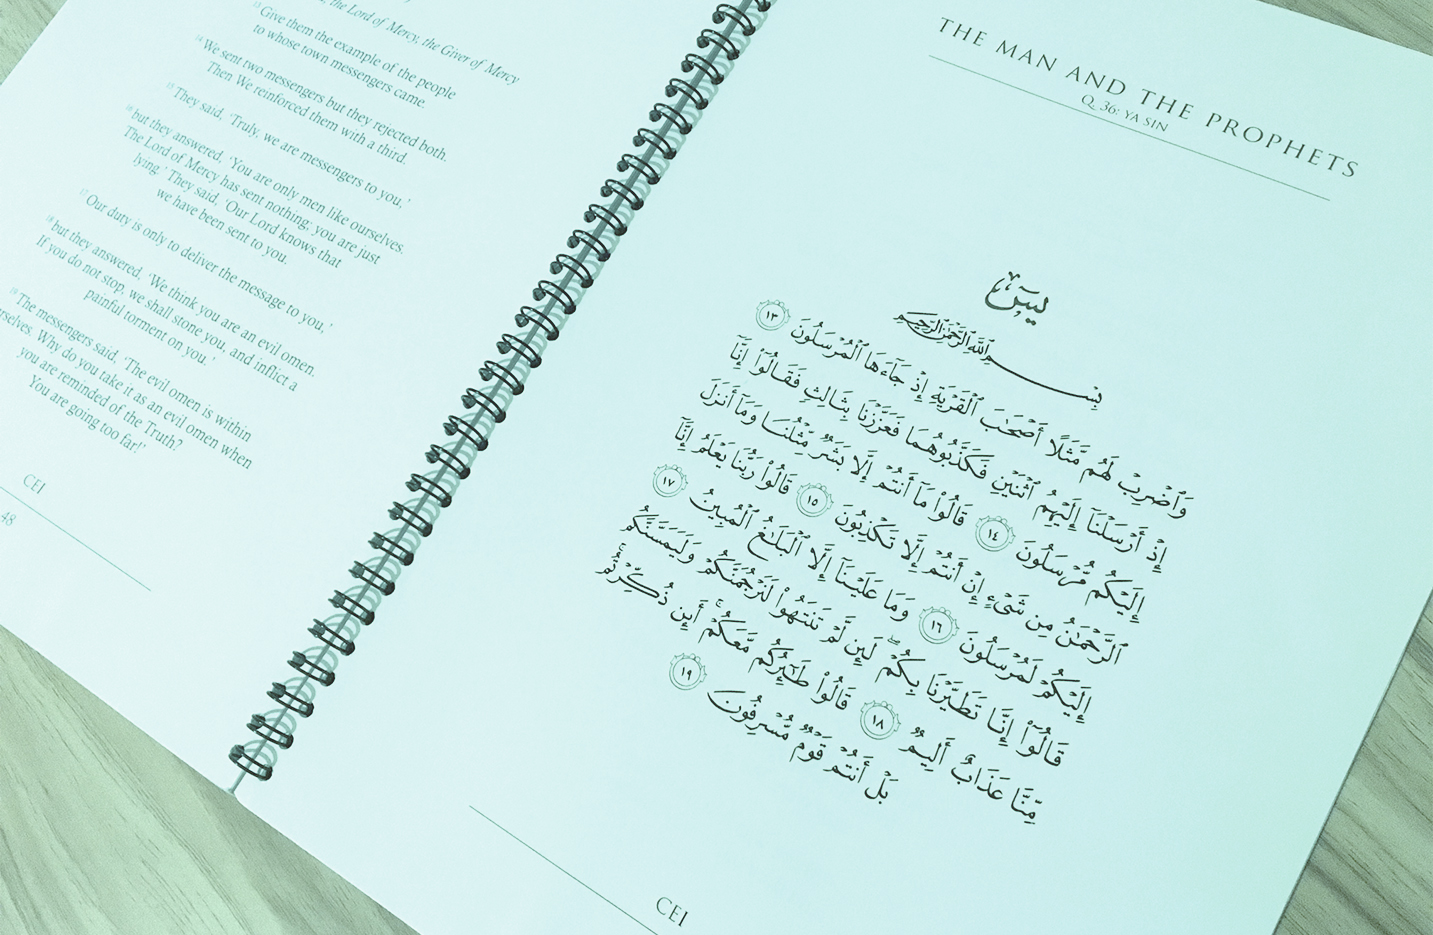 the Lord of Mercy, the Giver of Mercy
13 Give them the example of the people
to whose town messengers came.
14 We sent two messengers but they rejected both.
Then We reinforced them with a third.
15 They said, ‘Truly, we are messengers to you,’
16 but they answered, ‘You are only men like ourselves.
The Lord of Mercy has sent nothing; you are just
lying.’ They said, ‘Our Lord knows that
we have been sent to you.
17 Our duty is only to deliver the message to you,’
18 but they answered, ‘We think you are an evil omen.
If you do not stop, we shall stone you, and inflict a
painful torment on you.’
19 The messengers said, ‘The evil omen is within
Why do you take it as an evil omen when
you are reminded of the Truth?
You are going too far!’
CEI
48
THE MAN AND THE PROPHETS
Q. 36: YA SIN
يسٓ
بِسْمِ ٱللَّهِ ٱلرَّحْمَٰنِ ٱلرَّحِيمِ
وَٱضْرِبْ لَهُم مَّثَلًا أَصْحَٰبَ ٱلْقَرْيَةِ إِذْ جَآءَهَا ٱلْمُرْسَلُونَ ١٣
إِذْ أَرْسَلْنَآ إِلَيْهِمُ ٱثْنَيْنِ فَكَذَّبُوهُمَا فَعَزَّزْنَا بِثَالِثٍ فَقَالُوٓا۟ إِنَّآ
إِلَيْكُم مُّرْسَلُونَ ١٤ قَالُوا۟ مَآ أَنتُمْ إِلَّا بَشَرٌ مِّثْلُنَا وَمَآ أَنزَلَ
ٱلرَّحْمَٰنُ مِن شَىْءٍ إِنْ أَنتُمْ إِلَّا تَكْذِبُونَ ١٥ قَالُوا۟ رَبُّنَا يَعْلَمُ إِنَّآ
إِلَيْكُمْ لَمُرْسَلُونَ ١٦ وَمَا عَلَيْنَآ إِلَّا ٱلْبَلَٰغُ ٱلْمُبِينُ ١٧
قَالُوٓا۟ إِنَّا تَطَيَّرْنَا بِكُمْ ۖ لَئِن لَّمْ تَنتَهُوا۟ لَنَرْجُمَنَّكُمْ وَلَيَمَسَّنَّكُم
مِّنَّا عَذَابٌ أَلِيمٌ ١٨ قَالُوا۟ طَٰٓئِرُكُم مَّعَكُمْ ۚ أَئِن ذُكِّرْتُم ۚ
بَلْ أَنتُمْ قَوْمٌ مُّسْرِفُونَ ١٩
CEI